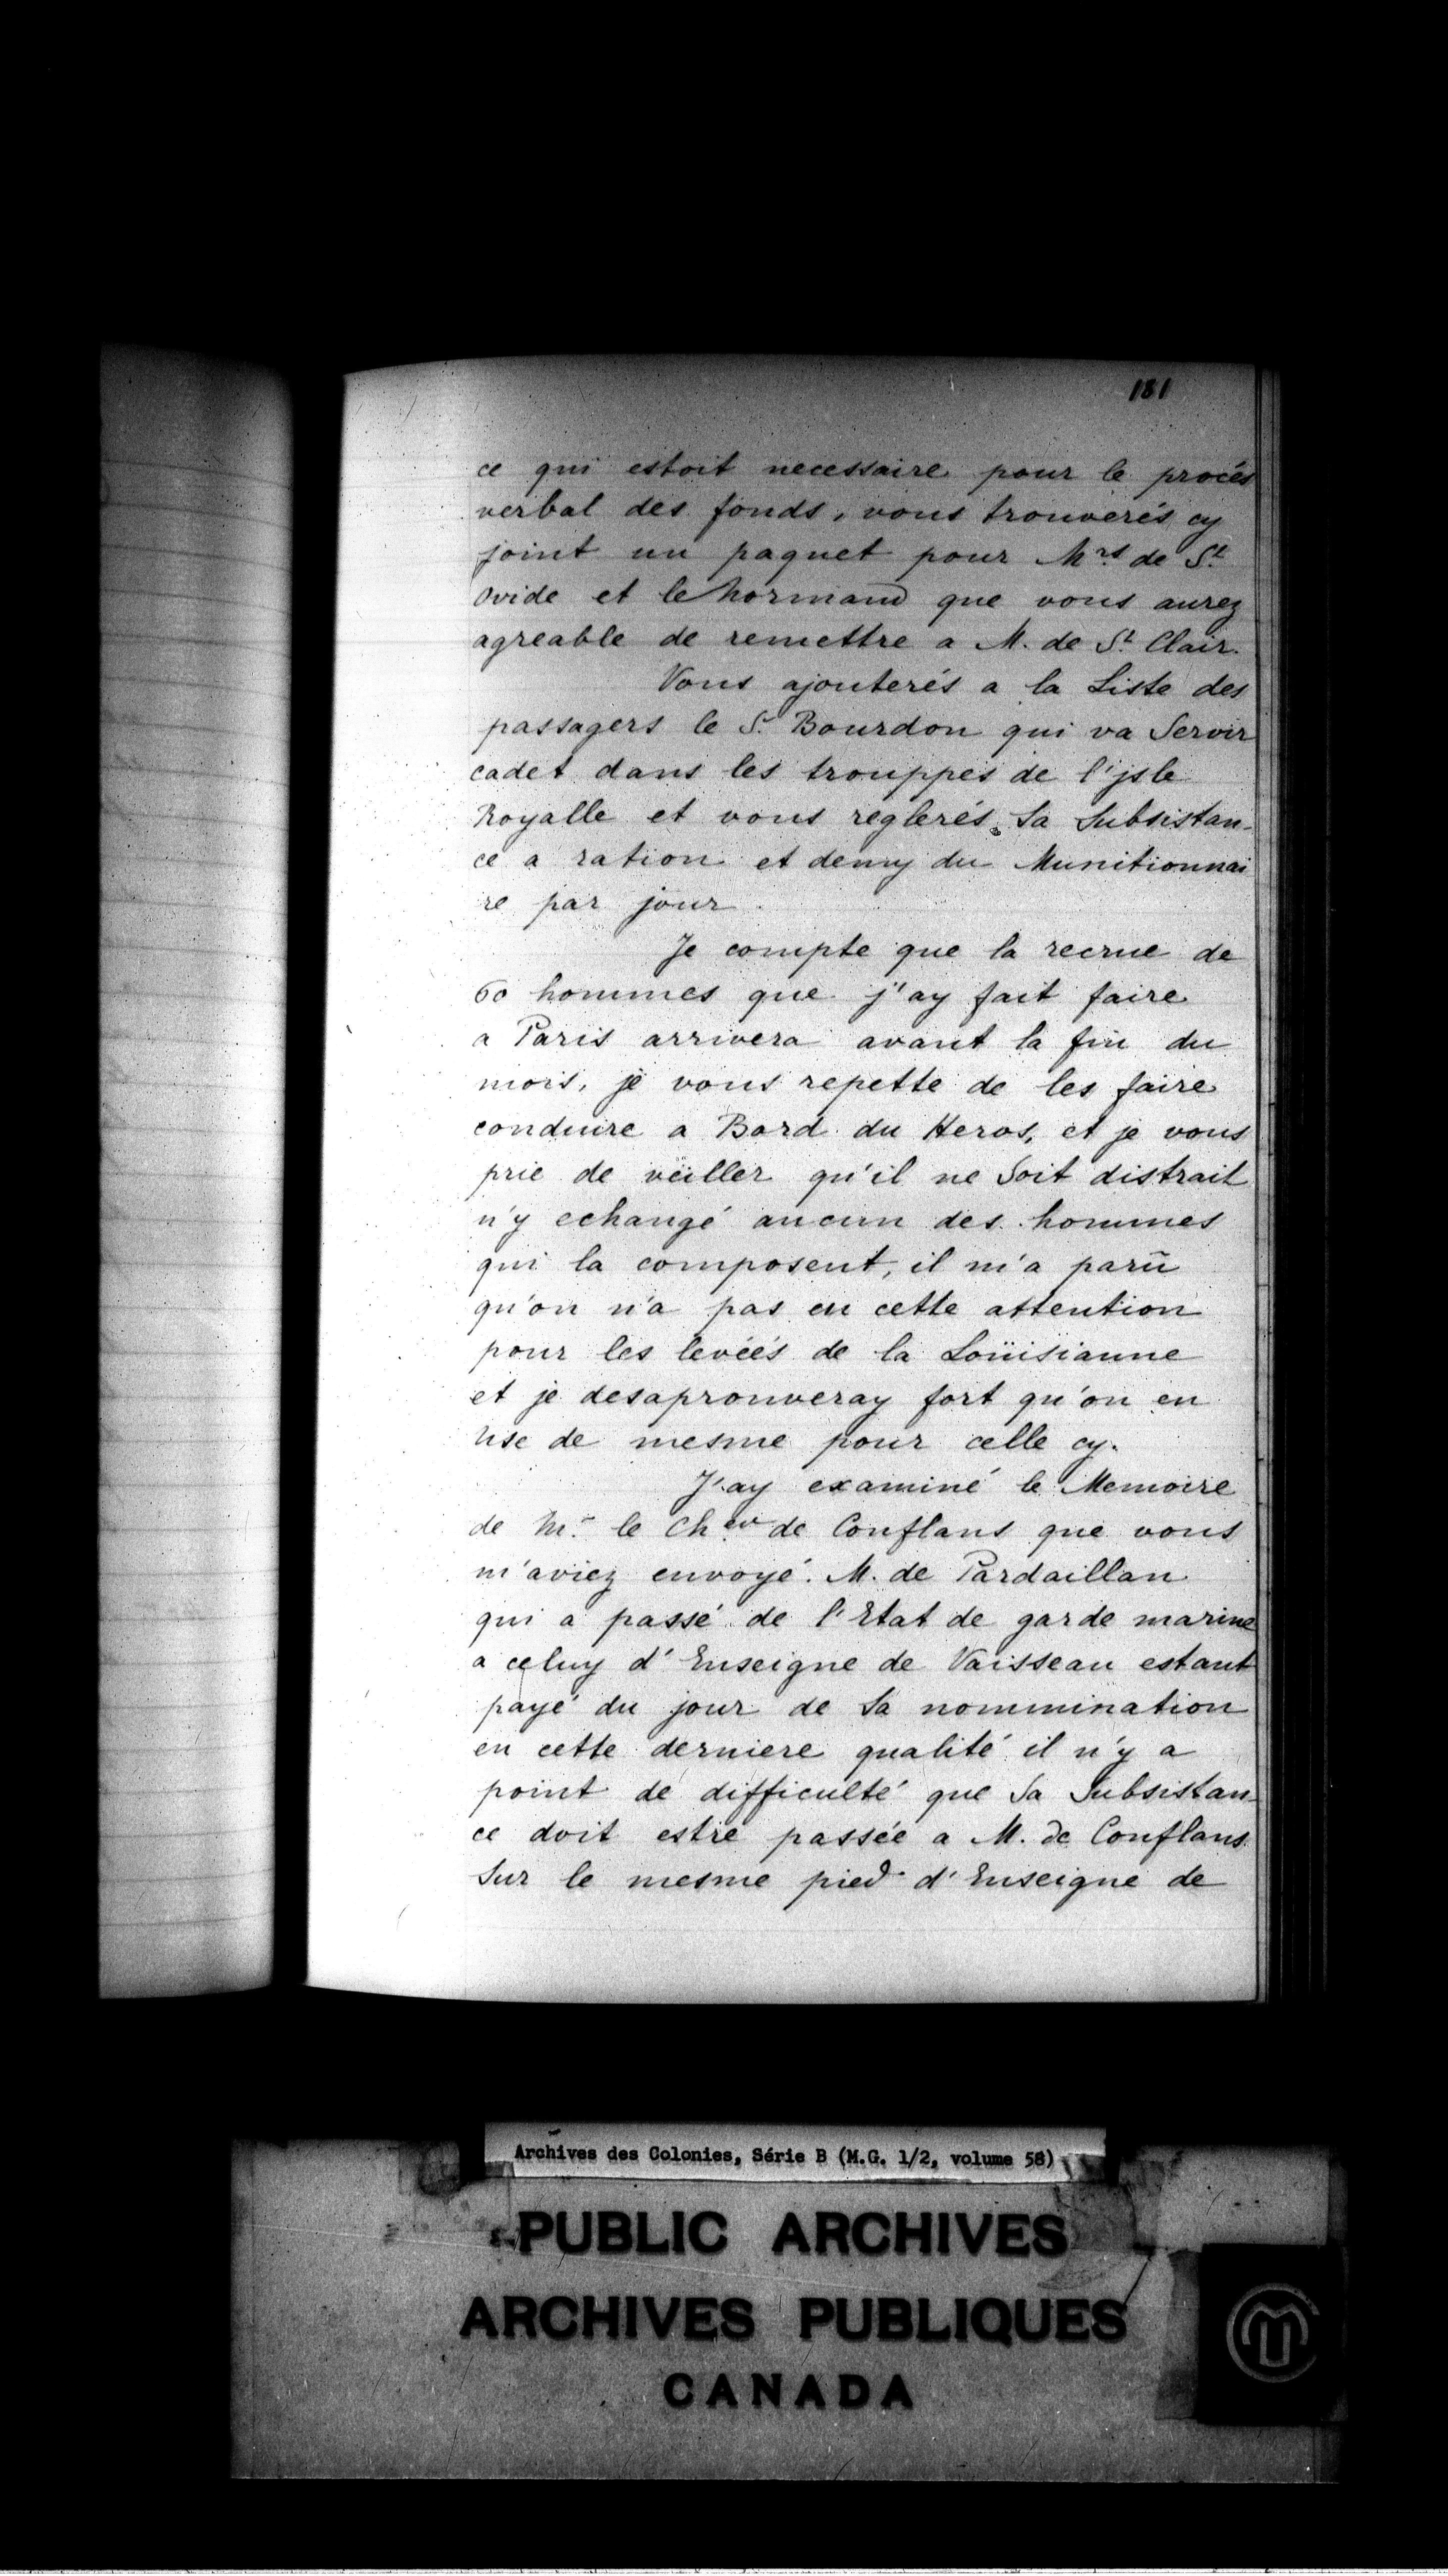 181
ce qui estoit necessaire pour le procés
verbal des fonds, vous trouverés cy
joint un paquet pour Mrs de St
Ovide et le Normand que vous aurez
agreable de remettre a M. de St Clair.
Vous ajouterés a la Liste des
passagers le Sr Bourdon qui va Servir
cadet dans les trouppes de l'jsle
Royalle et vous reglerés Sa Subsistan-
ce a ration et demy du Munitionnai
re par jour.
Je compte que la recrue de
60 hommes que j'ay fait faire
a Paris arrivera avant la fin du
mois, je vous repette de les faire
conduire a Bord du Heros, et je vous
prie de veiller qu'il ne Soit distrait
n'y echangé aucun des hommes
qui la composent, il m'a parû
qu'on n'a pas eu cette attention
pour les levéés de la Loüisianne
et je desaprouveray fort qu'on en
Use de mesme pour celle cy.
J'ay examiné le Memoire
de Mr le Cher de Conflans que vous
m'aviez envoyé. M. de Pardaillan
qui a passé de l'Etat de garde marine
a celuy d'Enseigne de Vaisseau estant
payé du jour de Sa nommination
en cette derniere qualité il n'y a
point de difficulté que Sa Subsistan-
ce doit estre passée a M. de Conflans
Sur le mesme pied d'Enseigne de
Archives des Colonies, Série B (M.G. 1/2, volume 58)
PUBLIC ARCHIVES
ARCHIVES PUBLIQUES
CANADA